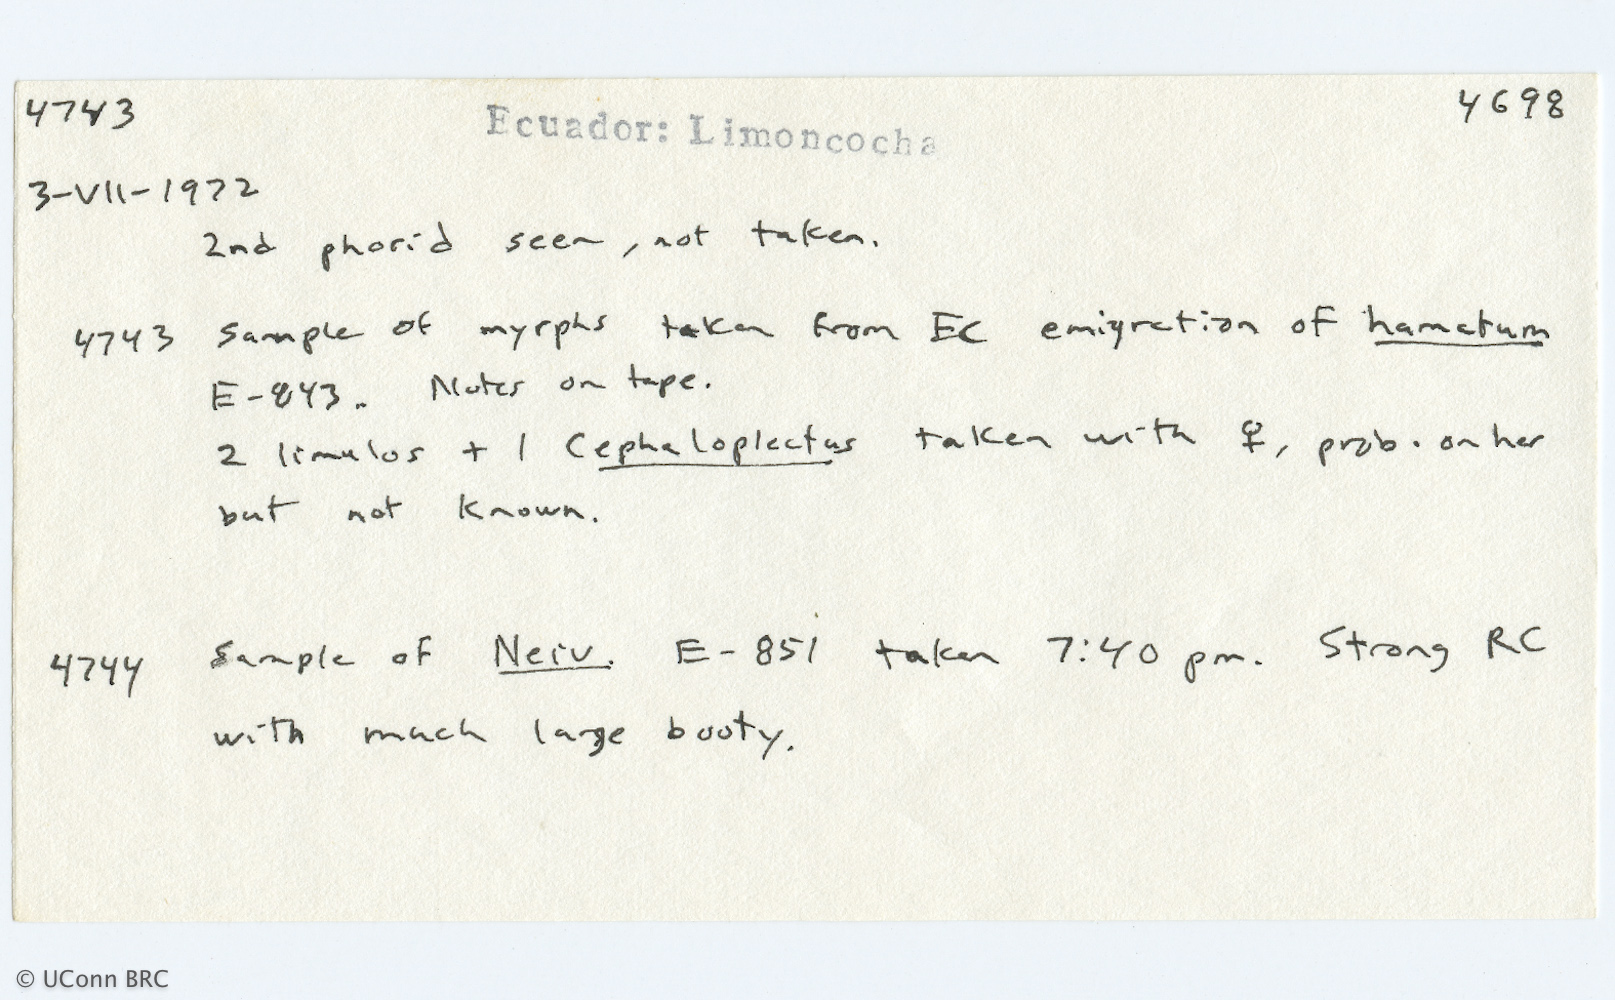 4743 Ecuador: Limoncocha 4698
3-VII-1972
2nd phorid seen, not taken.
4743 Sample of myrphs taken from EC emigration of hamatum
E-843. Notes on tape.
2 limulos + 1 Cephaloplectus taken with ♀, prob. on her
but not known.
4744 Sample of Neiv. E-851 taken 7:40 pm. Strong RC
with much large booty.
© UConn BRC